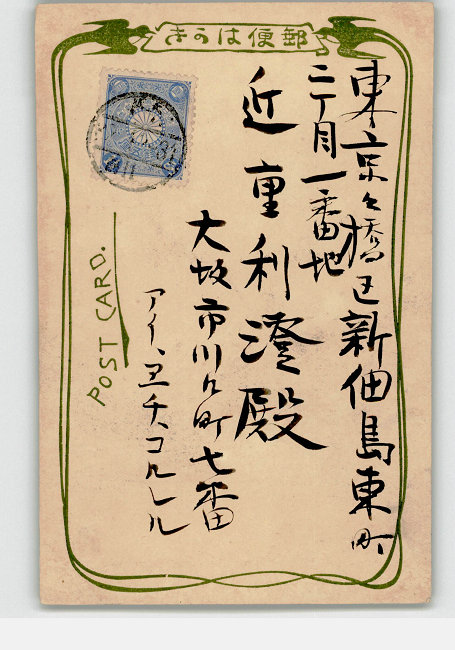 郵便はがき
東京々橋区新佃島東町
二丁目一番地
近重利澄殿
大坂市川口町七番
アイ、エチ、コルレル
POST CARD.